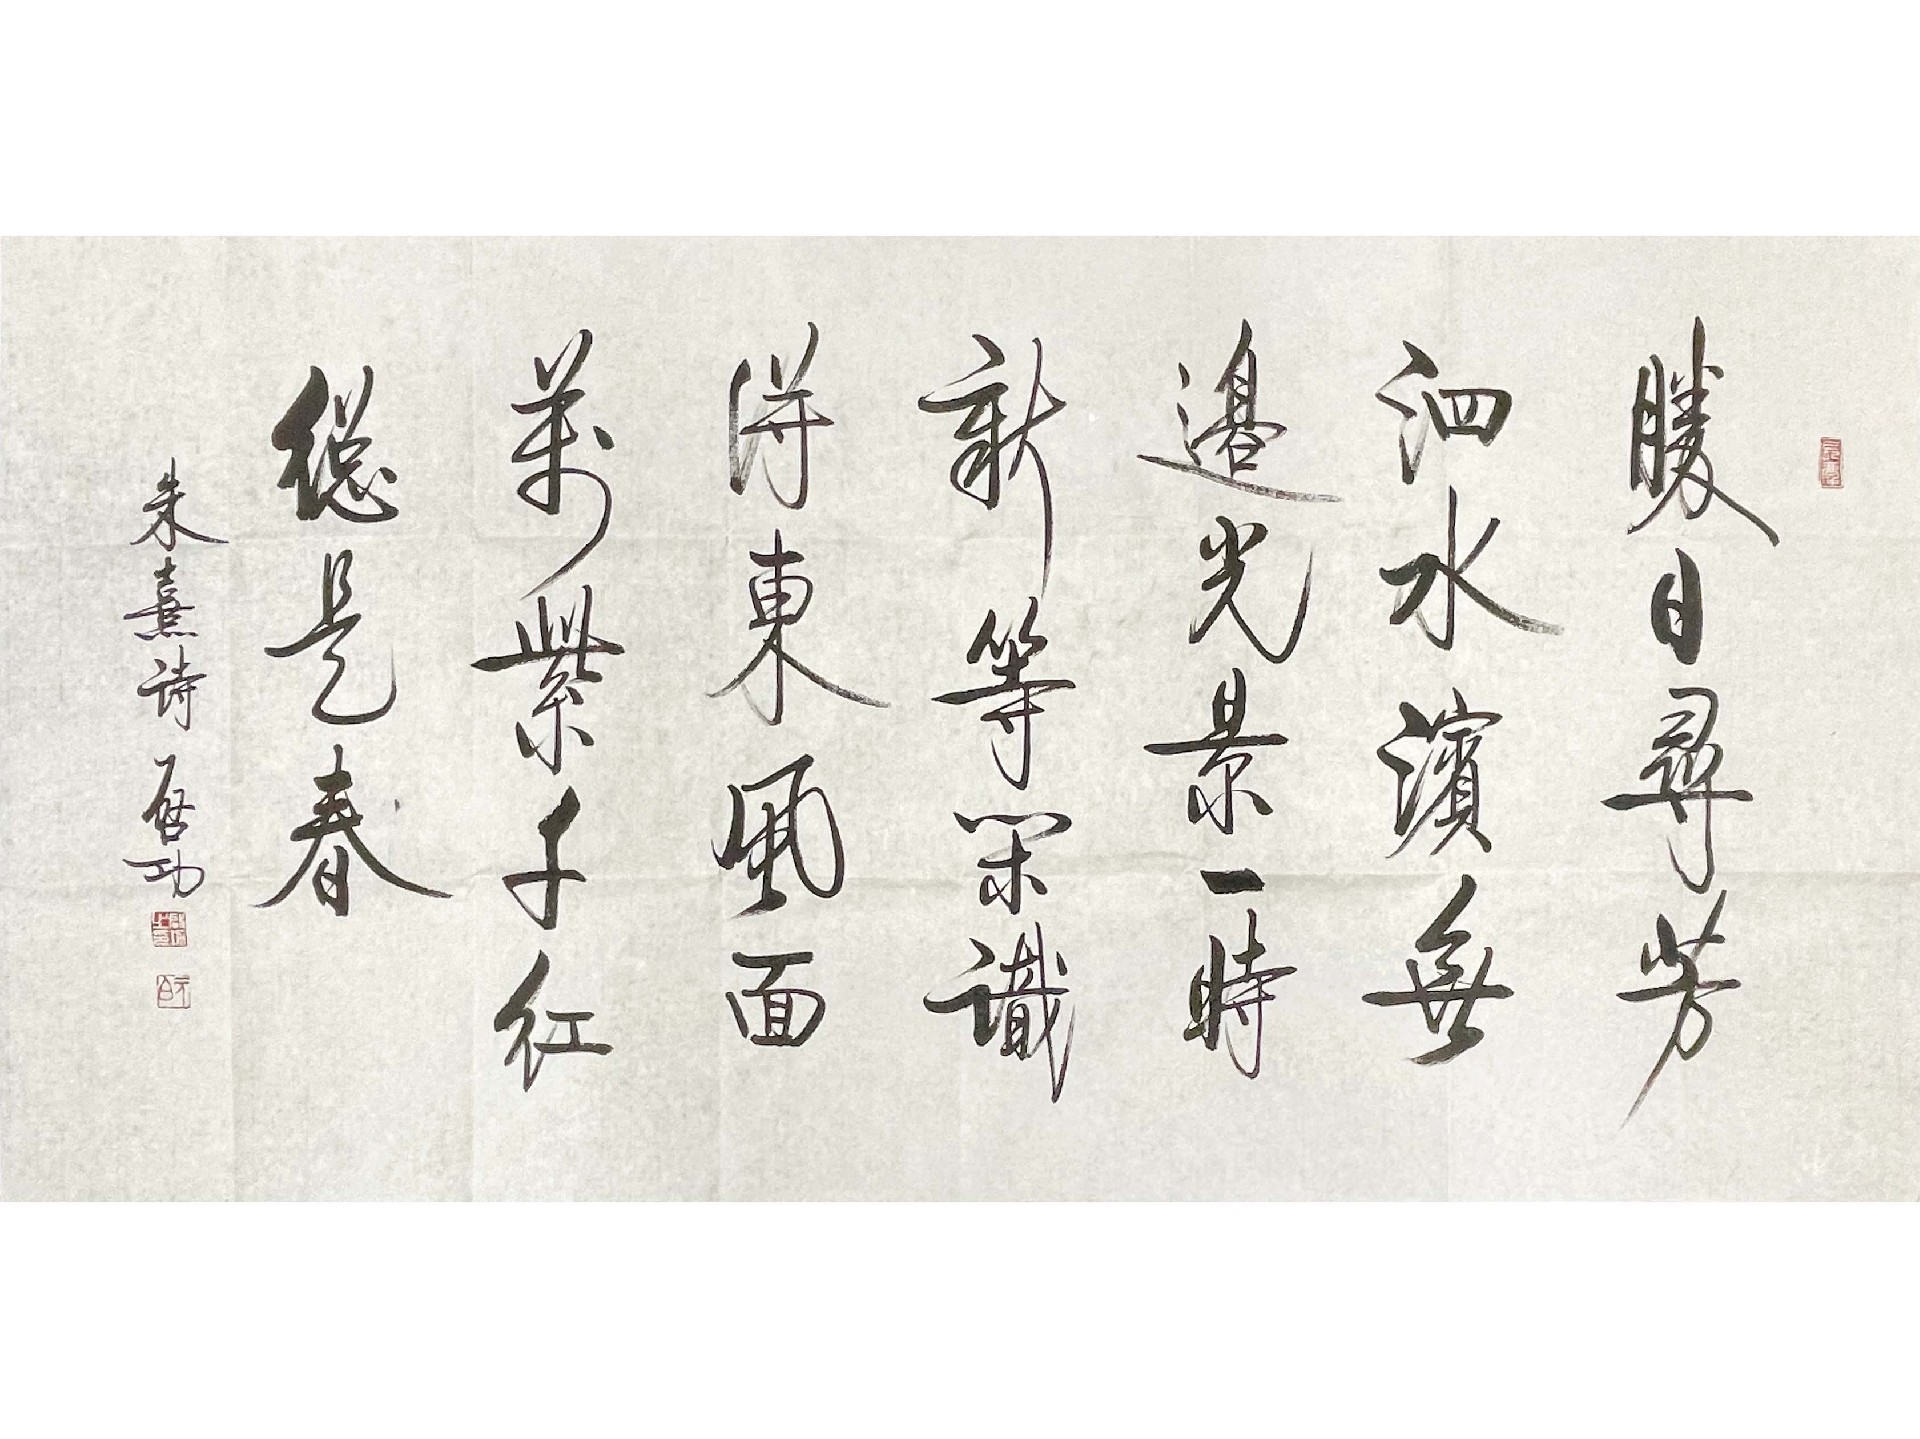 勝日尋芳
泗水濱無
邊光景一時
新等閑識
得東風面
萬紫千紅
總是春
朱熹詩 啟功